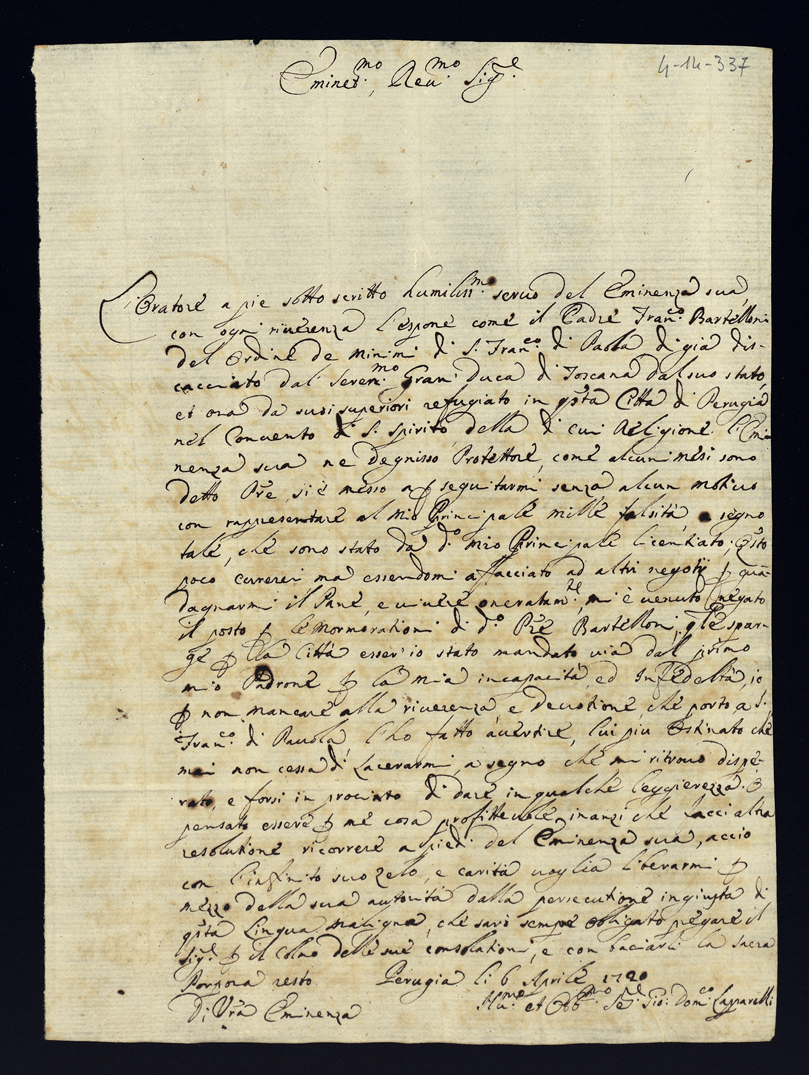 4-14-337
Eminet.mo, Reu.mo Sig.re
L'Oratore a pie sotto scritto humiliss.mo seruo del Eminenza sua,
con ogni riuerenza l'espone come il Padre Fran.co Bartelloni
del Ordine de Minimi di S. Fran.co di Paola di già dis-
cacciato dal Serem.mo Gran Duca di Toscana dal suo stato,
et ora da suoi superiori refugiato in qsta Città di Perugia
nel Conuento di S. Spirito della di cui Religione l'Emi-
nenza sua ne degnisso Protettore, come alcuni mesi sono
detto Pre si è messo a pseguitarmi senza alcun motiuo
con rappresentare al mio Principale mille falsità a segno
tale, che sono stato da d.o mio Principale licentiato; Qsto
poco currerei ma essendomi affacciato ad altri negotij p qua-
dagnarmi il Pane, e uiuere onoratam.te, mi è uenuto negato
il posto p le Mormorationi di d.o Pre Bartelloni, qle spar-
ge p la Città esser io stato mandato uia dal primo
mio Padrone p la mia incapacità, ed Infedeltà, io
p non mancare alla riuerenza e deuotione, che porto a S.
Fran.co di Pauola, l'ho fatto auertire, lui piu Ostinato che
mai non cessa di Lacerarmi a segno che mi ritrouo dispe-
rato, e forsi in prociato di dare in qualche leggierezza ò
pensato essere p me cosa profitteuole inanzi che facci altra
resolutione ricorrere a piedi del Eminenza sua, accio
con l'infinito suo zelo, e carità uoglia liberarmi p
mezzo della sua autorità dalla persecutione ingiusta di
qsta Lingua maligna, che sarò sempre oblicato pregare il
Sig.re p il Colmo delle sue consolationi, e con baciarli la sacra
Porpora resto. Perugia li 6 Aprile 1720
Di Vra Eminenza
Hu.mo et Obb.mo Se.re Gio: Dom.co Lapparelli